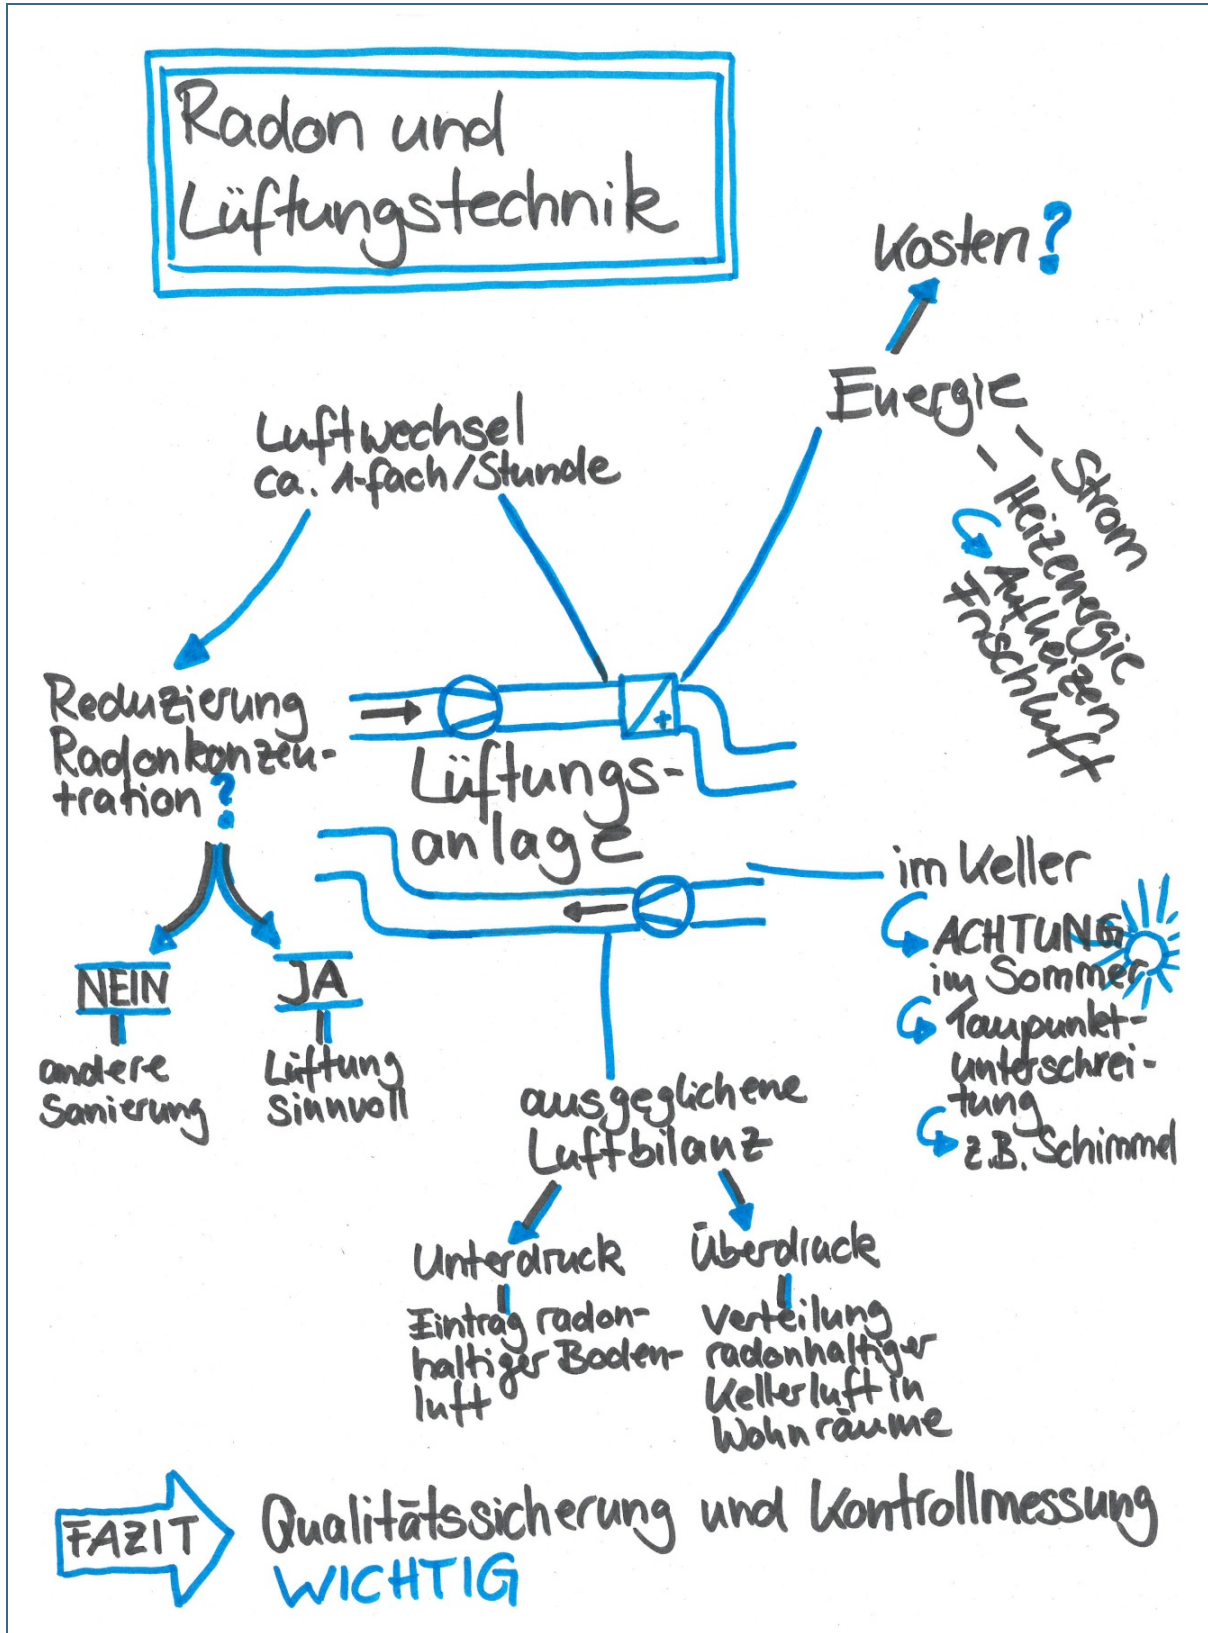 Radon und
Lüftungstechnik
Kosten?
Energie
Strom
Heizenergie
Aufheizen
Frischluft
Luftwechsel
ca. 1-fach/Stunde
Reduzierung
Radonkonzen-
tration?
NEIN
andere
Sanierung
JA
Lüftung
sinnvoll
+
Lüftungs-
anlage
im Keller
ACHTUNG
im Sommer
Taupunkt-
unterschrei-
tung
z.B. Schimmel
ausgeglichene
Luftbilanz
Unterdruck
Eintrag radon-
haltiger Boden-
luft
Überdruck
Verteilung
radonhaltiger
Kellerluft in
Wohnräume
FAZIT
Qualitätssicherung und Kontrollmessung
WICHTIG